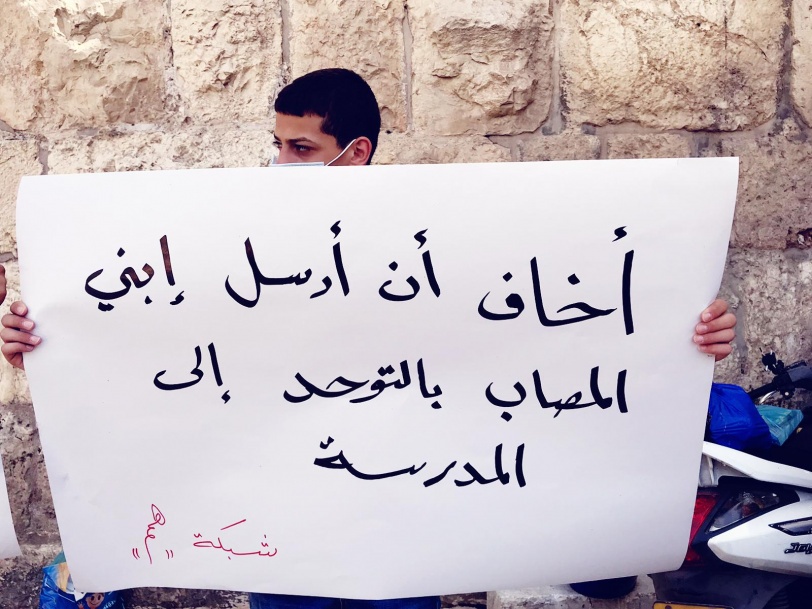 أخاف أن أرسل إبني
المصاب بالتوحد إلى
المدرسة
شبكة "همم"